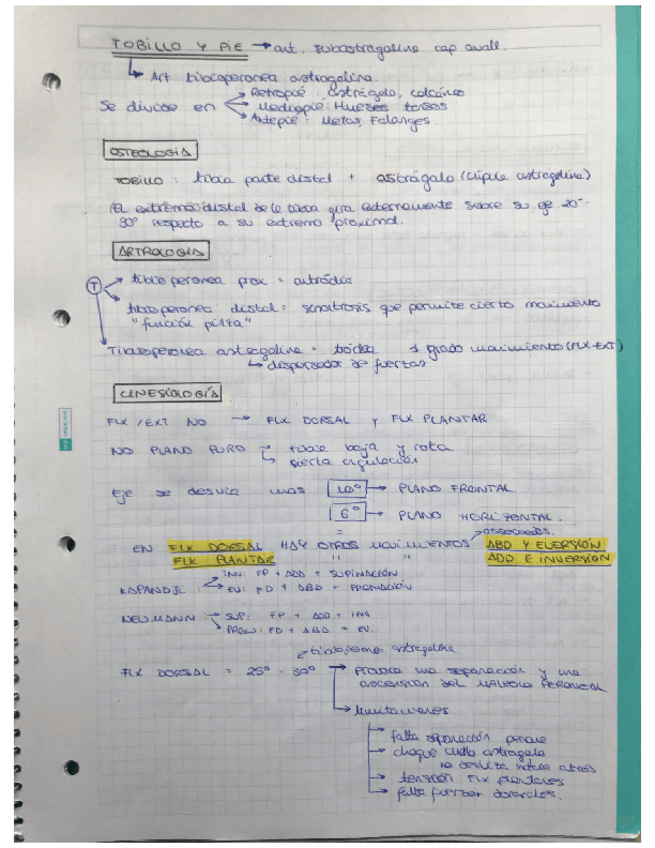 TOBILLO Y PIE → art. subastragalina cap avall.
↳ Art tibioperonea astragalina.
Se divide en → Retropié: astrágalo, calcáneo
→ Mediopié: Huesos tarsos
→ Antepié: Metas, Falanges
OSTEOLOGIA
TOBILLO: tibia parte distal + astrágalo (cúpula astragalina)
EL extremo distal de la tibia gira externamente sobre su eje 20°-
30° respecto a su extremo proximal.
ARTROLOGIA
T → tibio peronea prox = artrodia
→ tibio peronea distal = sinartrosis que permite cierto movimiento
"función pinza"
Tibioperonea astragalina = tróclea 1 grado movimiento (FLX-EXT)
↳ dispersador de fuerzas
CINESIOLOGÍA
FLX / EXT NO → FLX DORSAL Y FLX PLANTAR
NO PLANO PURO → tibia baja y rota
↳ cierta angulación
Eje se desvia unos 10° → PLANO FRONTAL
6° → PLANO HORIZONTAL.
asociados.
EN FLX DORSAL HAY OTROS MOVIMIENTOS ABD Y EVERSIÓN
FLX PLANTAR " " ADD E INVERSIÓN
KAPANDJI → INV: FP + ADD + SUPINACIÓN
→ EV: FD + ABD + PRONACIÓN
NEUMANN → SUP: FP + ADD + INV
→ PRON: FD + ABD + EV.
tibioperonea astragalina
FLX DORSAL = 25° - 30° → Provoca una separación y una
ascensión DEL MALEOLO PERONEAL
↳ limitaciones
→ falta separación peroné
→ choque cuello astragalo
no desliza hacia atrás
→ tensión FLX plantares
→ falta fuerza dorsales.